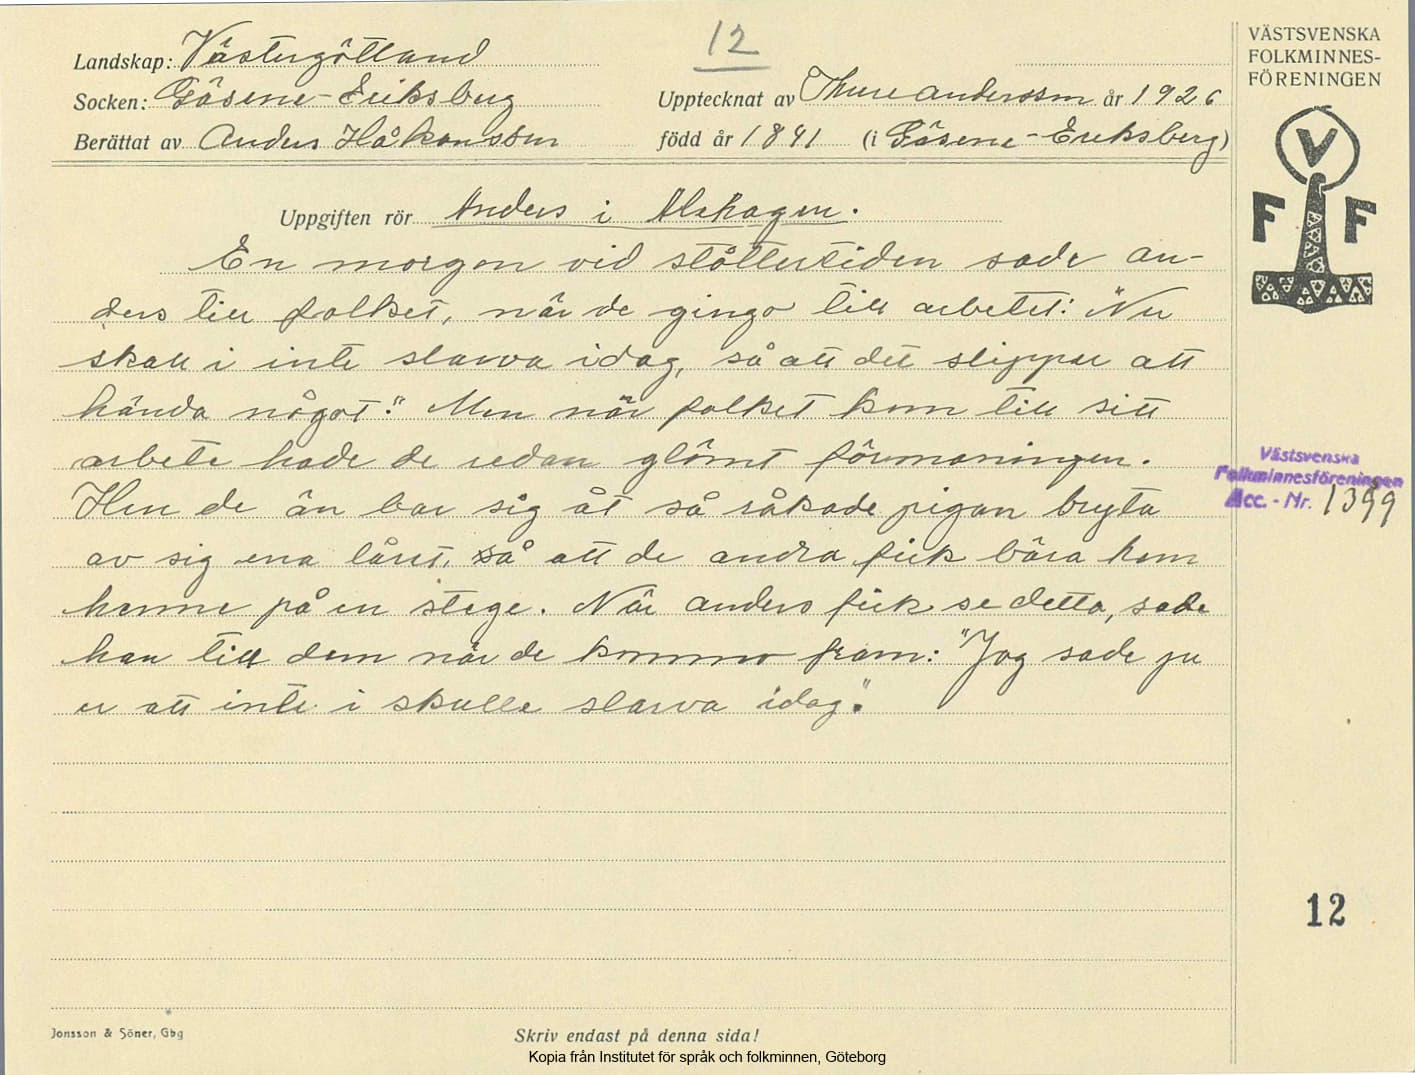 12
Landskap: Västergötland
Socken: Gäsene-Eriksberg
Upptecknat av Thure Andersson år 1926
Berättat av Anders Håkansson
född år 1841 (i Gäsene-Eriksberg)
VÄSTSVENSKA
FOLKMINNES-
FÖRENINGEN
V
F F
Uppgiften rör Anders i Alehagen.
En morgon vid slåttertiden sade An-
ders till folket, när de gingo till arbetet: "Nu
skall i inte slarva idag, så att det slipper att
hända något." Men när folket kom till sitt
arbete hade de redan glömt förmaningen.
Hur de än bar sig åt så råkade pigan bryta
av sig ena låret, så att de andra fick bära hem
henne på en stege. När Anders fick se detta, sade
han till dem när de kommo fram: "Jag sade ju
er att inte i skulle slarva idag."
Västsvenska
Folkminnesföreningen
Acc. - Nr. 1399
12
Jonsson & Söner, Gbg
Skriv endast på denna sida!
Kopia från Institutet för språk och folkminnen, Göteborg